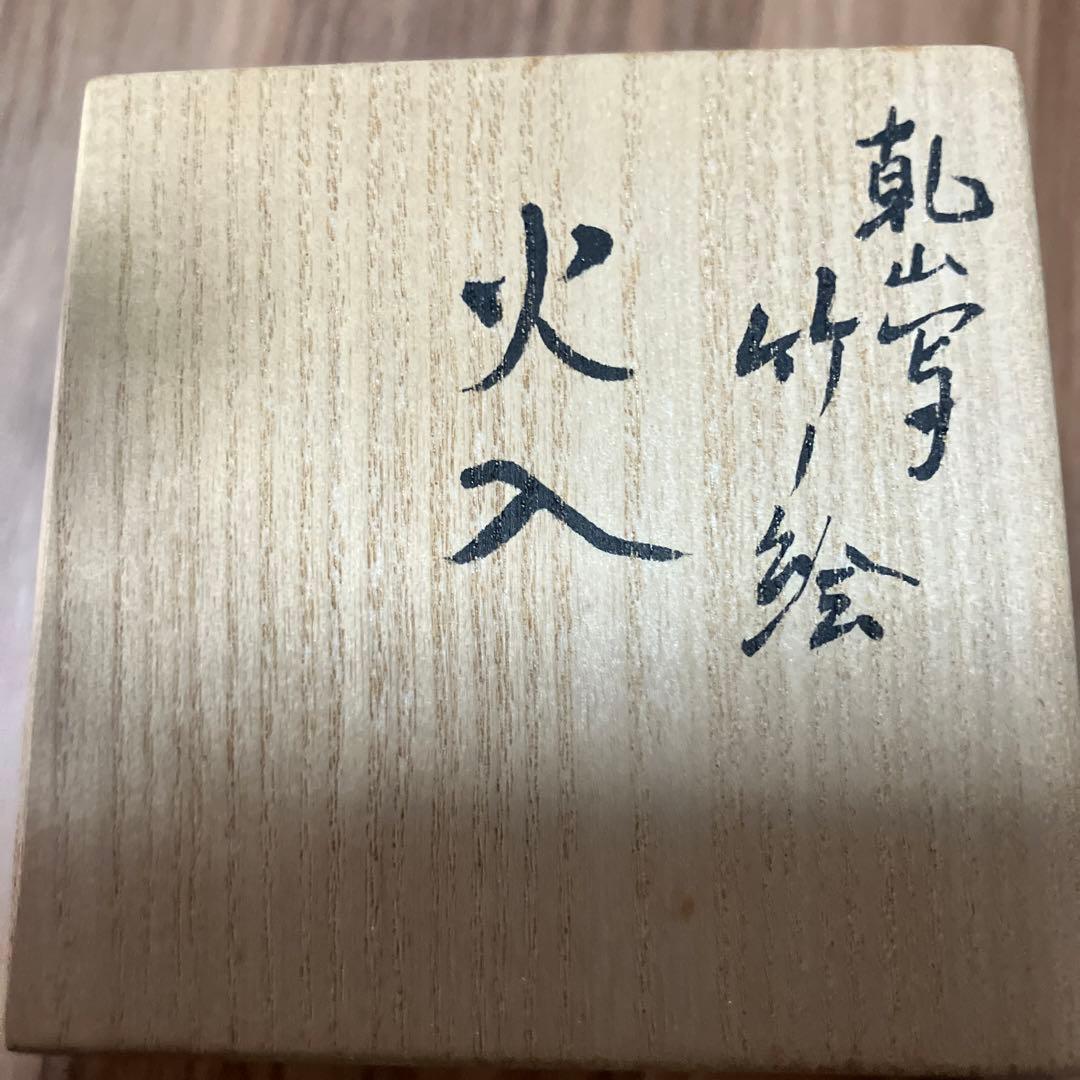 乾山写
竹ノ絵
火入